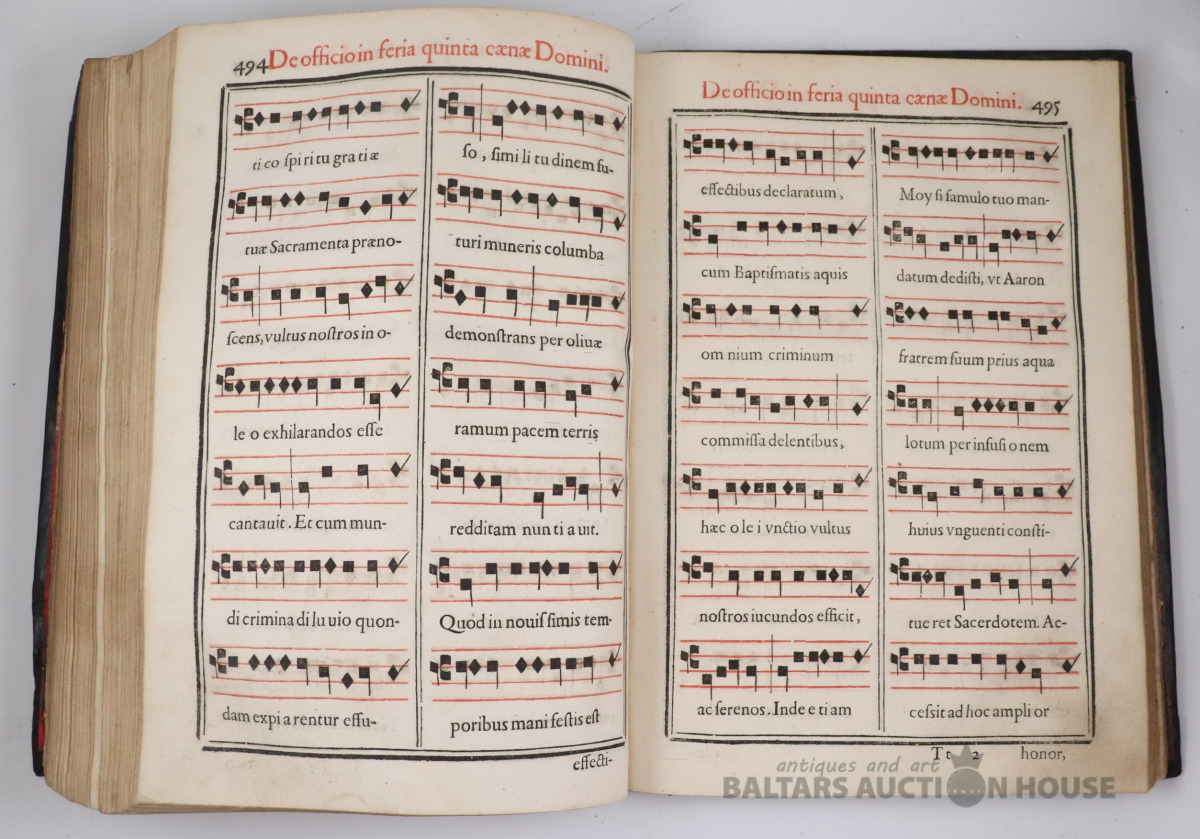 494 De officio in feria quinta cænæ Domini.
ti co ſpi ri tu gra ti æ
tuæ Sacramenta præno-
ſcens, vultus noſtros in o-
le o exhilarandos eſſe
cantauit. Et cum mun-
di crimina di lu uio quon-
dam expi a rentur effu-
ſo, ſimi li tu dinem fu-
turi muneris columba
demonſtrans per oliuæ
ramum pacem terris
redditam nun ti a uit.
Quod in nouiſ ſimis tem-
poribus mani feſtis eſt
effecti-
De officio in feria quinta cænæ Domini. 495
effectibus declaratum,
cum Baptiſmatis aquis
om nium criminum
commiſſa delentibus,
hæc o le i vnctio vultus
noſtros iucundos efficit,
ac ſerenos. Inde e ti am
Moy ſi famulo tuo man-
datum dediſti, vt Aaron
fratrem ſuum prius aqua
lotum per infuſi o nem
huius vnguenti conſti-
tue ret Sacerdotem. Ac-
ceſsit ad hoc ampli or
T t 2 honor,
antiques and art
BALTARS AUCTION HOUSE